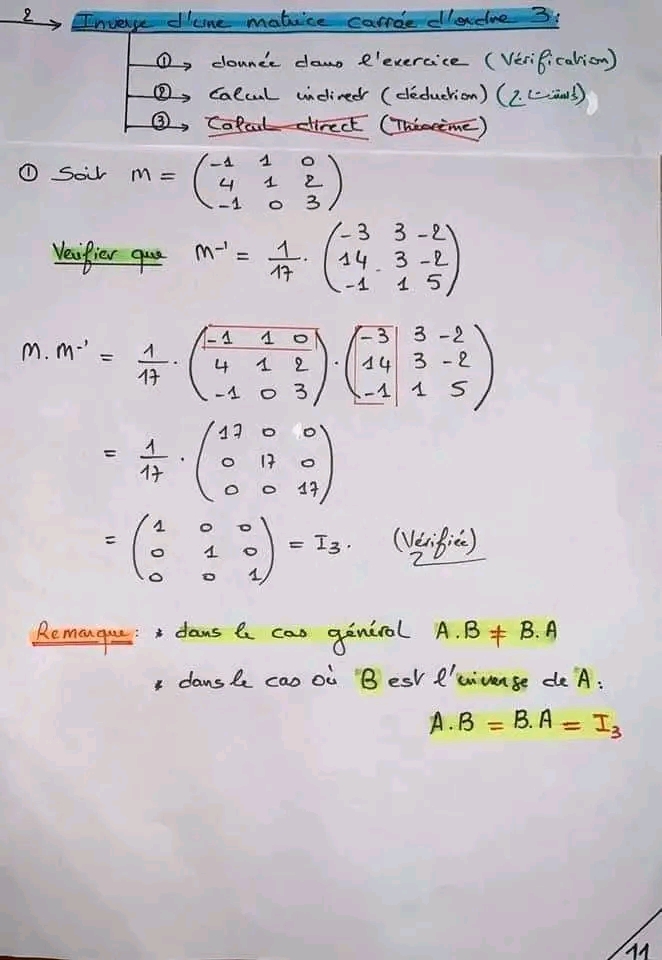 2 → Inverse d'une matrice carrée d'ordre 3 :
① → donnée dans l'exercice (Vérification)
② → Calcul indirect (déduction) (2. استنتاج)
③ → Calcul direct (Théorème)
① Soit M = ( -1 1 0
4 1 2
-1 0 3 )
Verifier que M⁻¹ = 1/17 . ( -3 3 -2
14 3 -2
-1 1 5 )
M.M⁻¹ = 1/17 . ( -1 1 0
4 1 2
-1 0 3 ) . ( -3 3 -2
14 3 -2
-1 1 5 )
= 1/17 . ( 17 0 0
0 17 0
0 0 17 )
= ( 1 0 0
0 1 0
0 0 1 ) = I₃. (Vérifiée)
Remarque : * dans le cas général A.B ≠ B.A
* dans le cas où B est l'inverse de A :
A.B = B.A = I₃
11